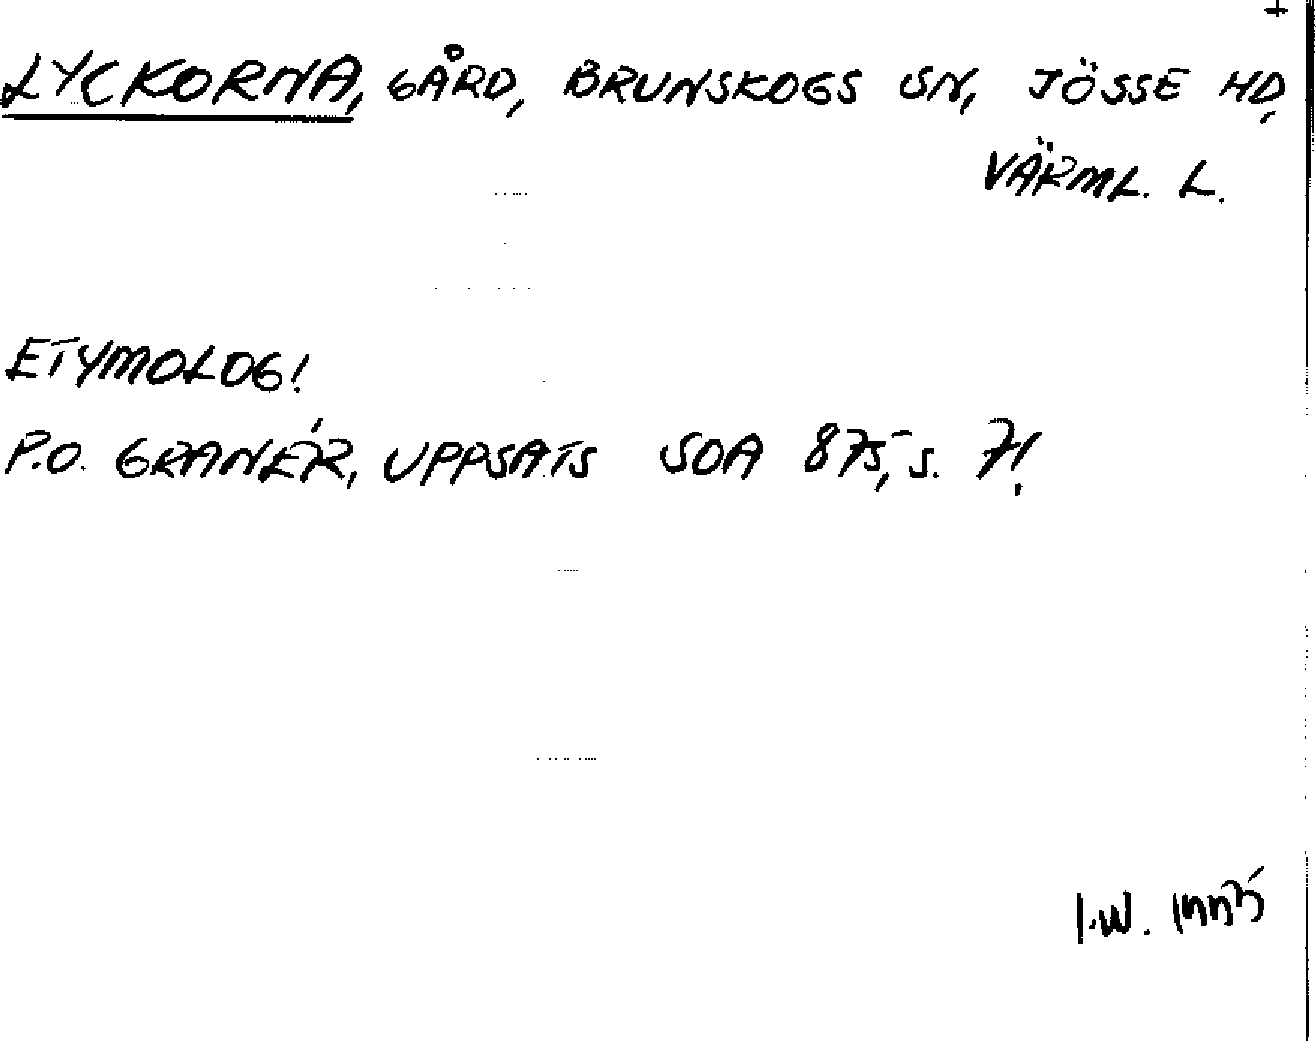 +
LYCKORNA, GÅRD, BRUNSKOGS SN, JÖSSE HD,
VÄRML. L.
ETYMOLOG!
P.O. GRANÉR, UPPSATS SOA 875, S. 7!
I.W.